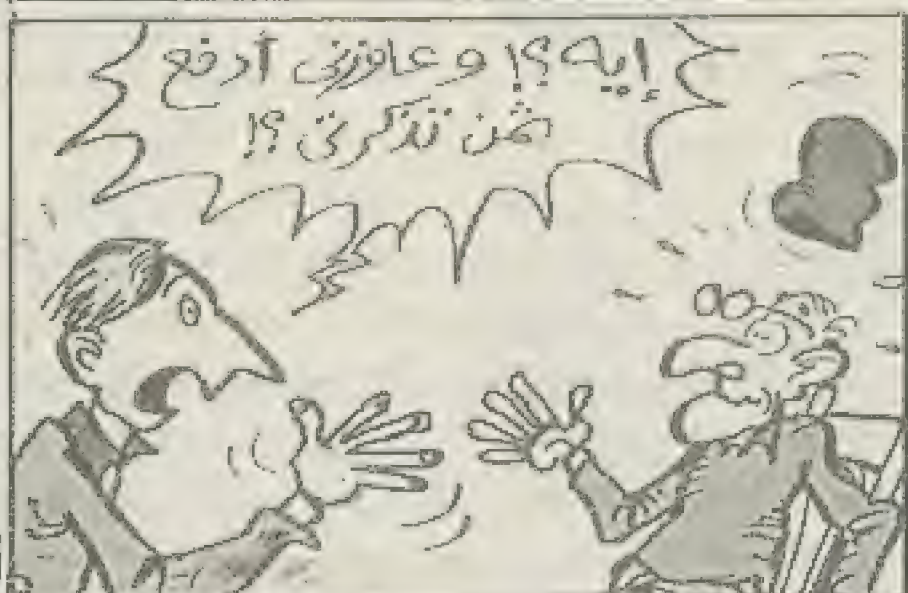 إيه ؟! و عاوزني أدفع
ثمن تذكرتي ؟!